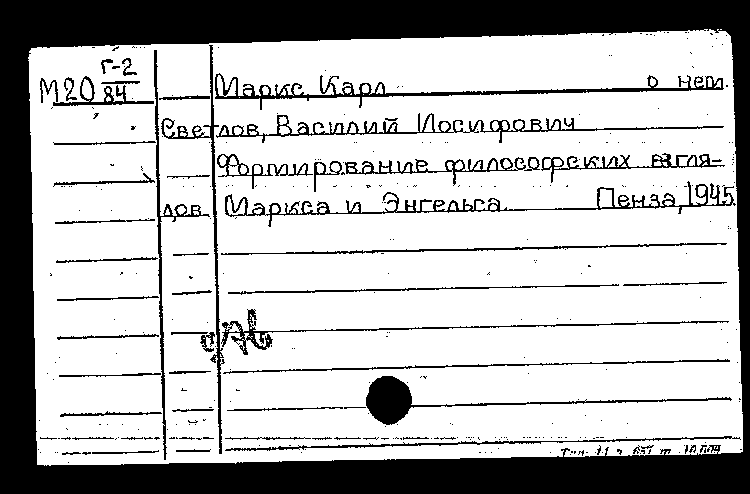 М20 Г-2/84 Маркс, Карл о нем.
Светлов, Василий Иосифович
Формирование философских взгля-
дов Маркса и Энгельса. Пенза, 1945